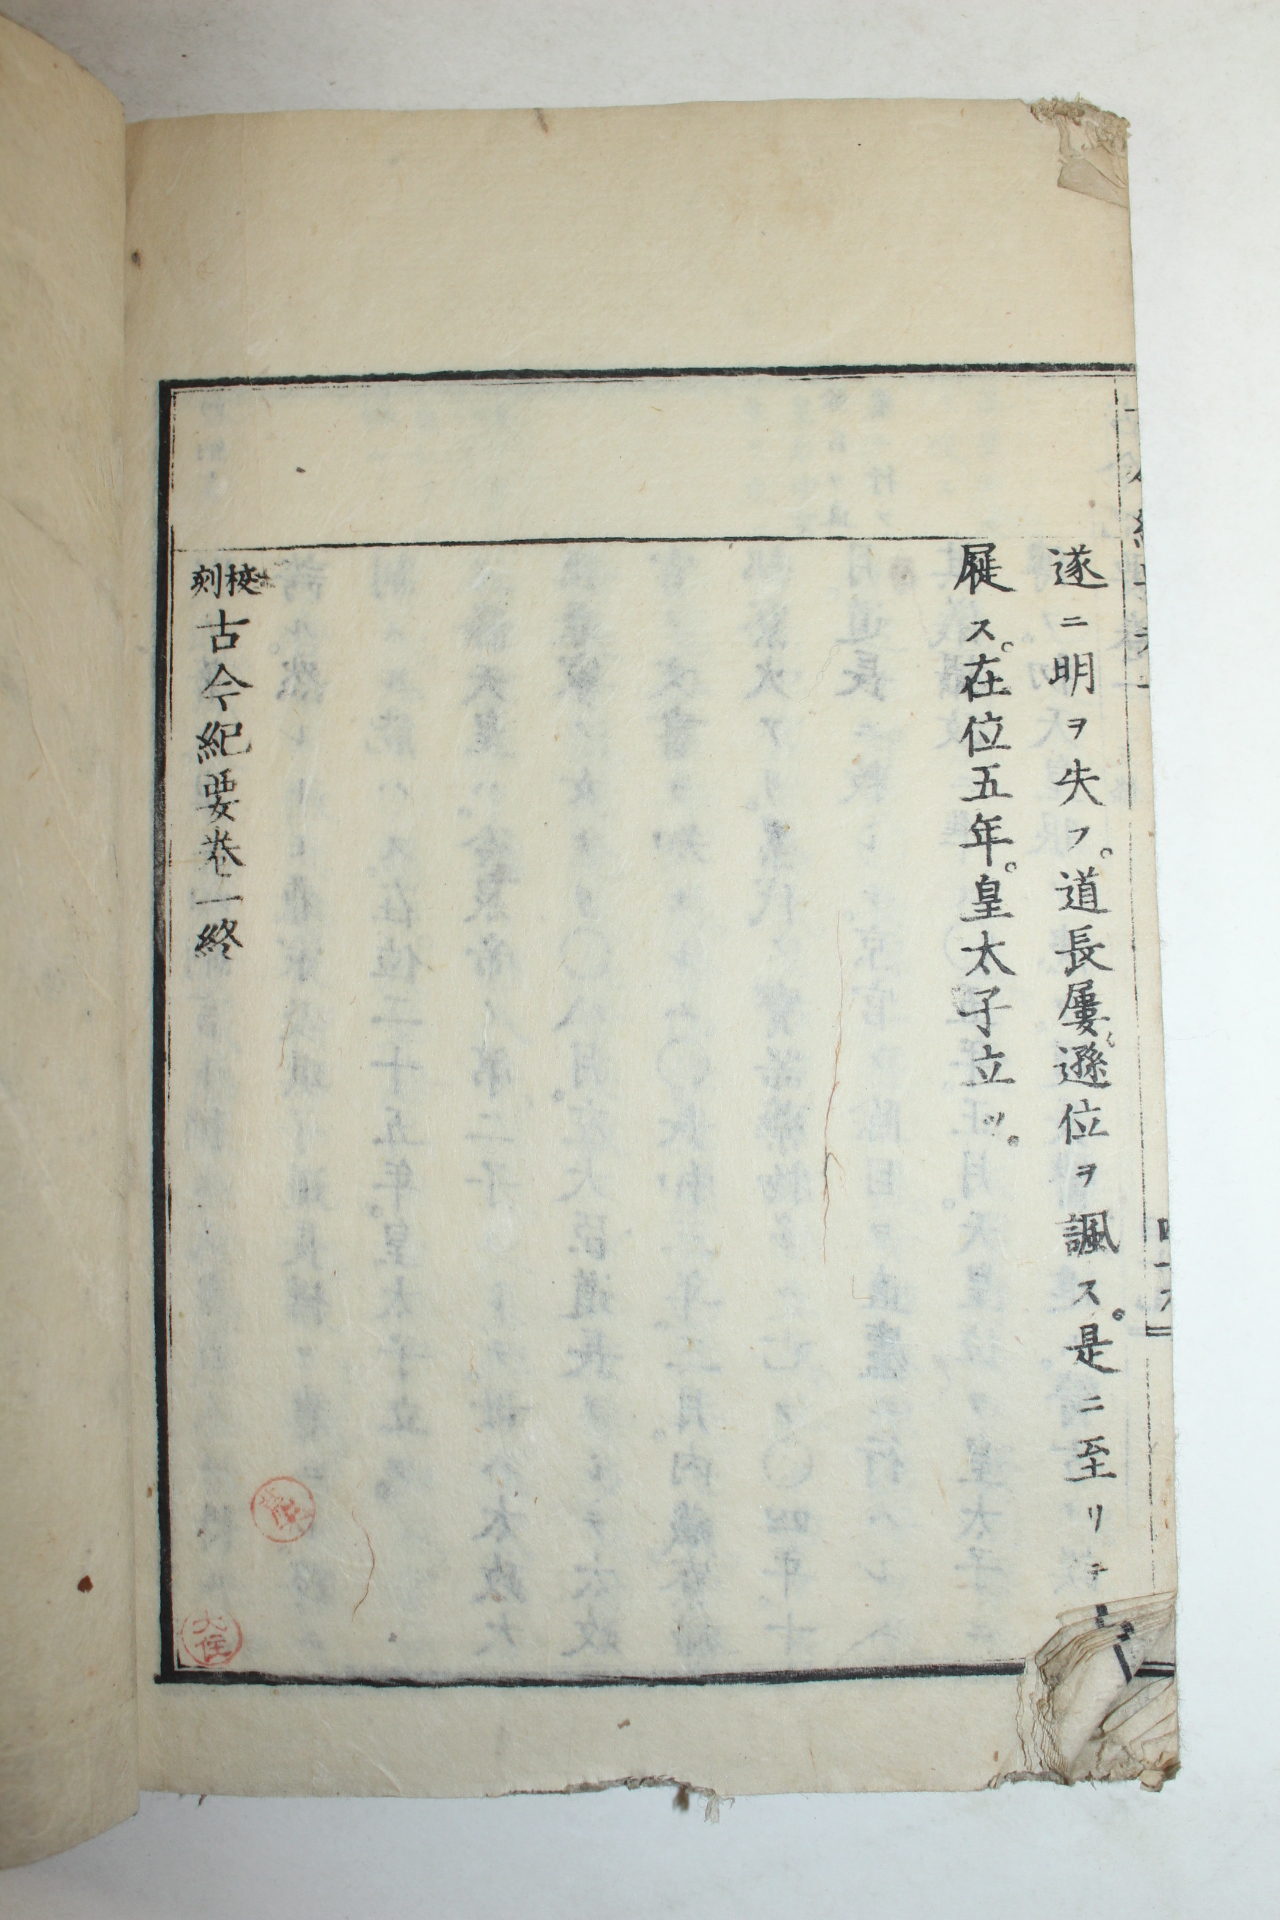 遂ニ明ヲ失フ。道長屢遜位ヲ諷ス。是ニ至リテ
屣ス。在位五年。皇太子立ツ。
校刻古今紀要卷一終